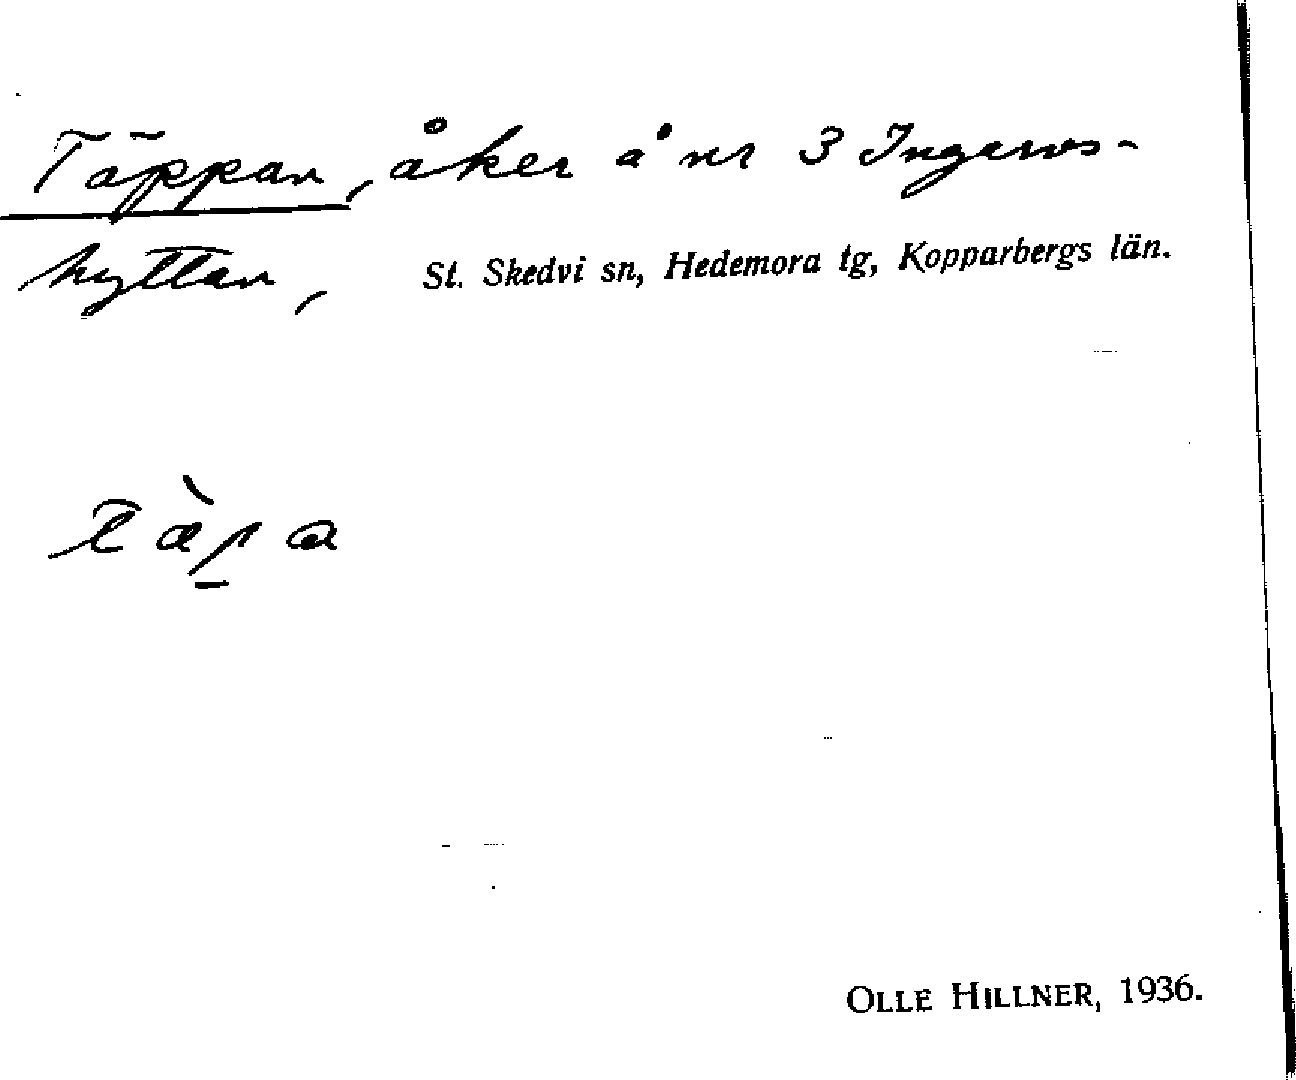 Täppan, åker å nr 3 Ingervs-
hyttan, St. Skedvi sn, Hedemora tg, Kopparbergs län.
tàp̲a
OLLE HILLNER, 1936.